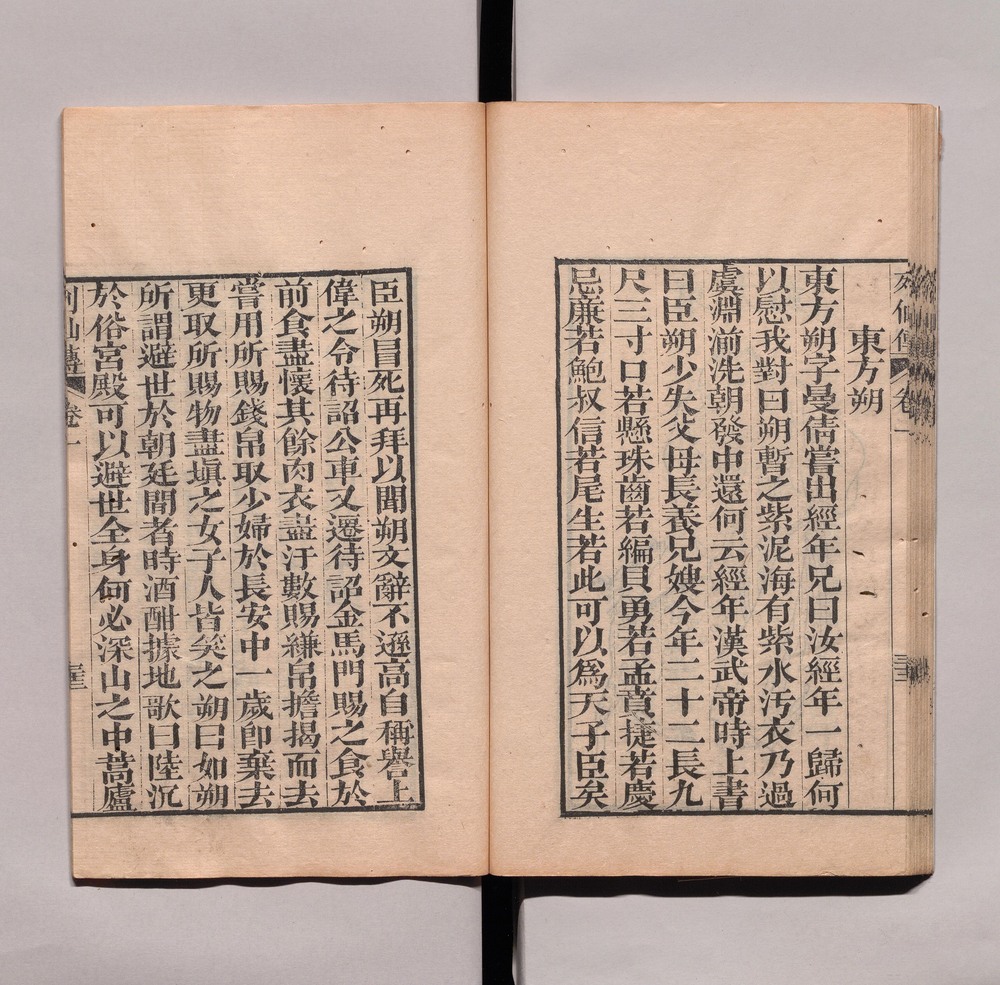 列仙傳 卷一
東方朔
東方朔字曼倩嘗出經年兄曰汝經年一歸何
以慰我對曰朔暫之紫泥海有紫水汚衣乃過
虞淵湔洗朝發中還何云經年漢武帝時上書
曰臣朔少失父母長養兄嫂今年二十二長九
尺三寸口若懸珠齒若編貝勇若孟賁捷若慶
忌廉若鮑叔信若尾生若此可以爲天子臣矣
臣朔冒死再拜以聞朔文辭不遜高自稱譽上
偉之令待詔公車又遷待詔金馬門賜之食於
前食盡懷其餘肉衣盡汙數賜縑帛擔揭而去
嘗用所賜錢帛取少婦於長安中一歲卽棄去
更取所賜物盡塡之女子人皆笑之朔曰如朔
所謂避世於朝廷間者時酒酣據地歌曰陸沉
於俗宮殿可以避世全身何必深山之中蒿廬
列仙傳 卷一